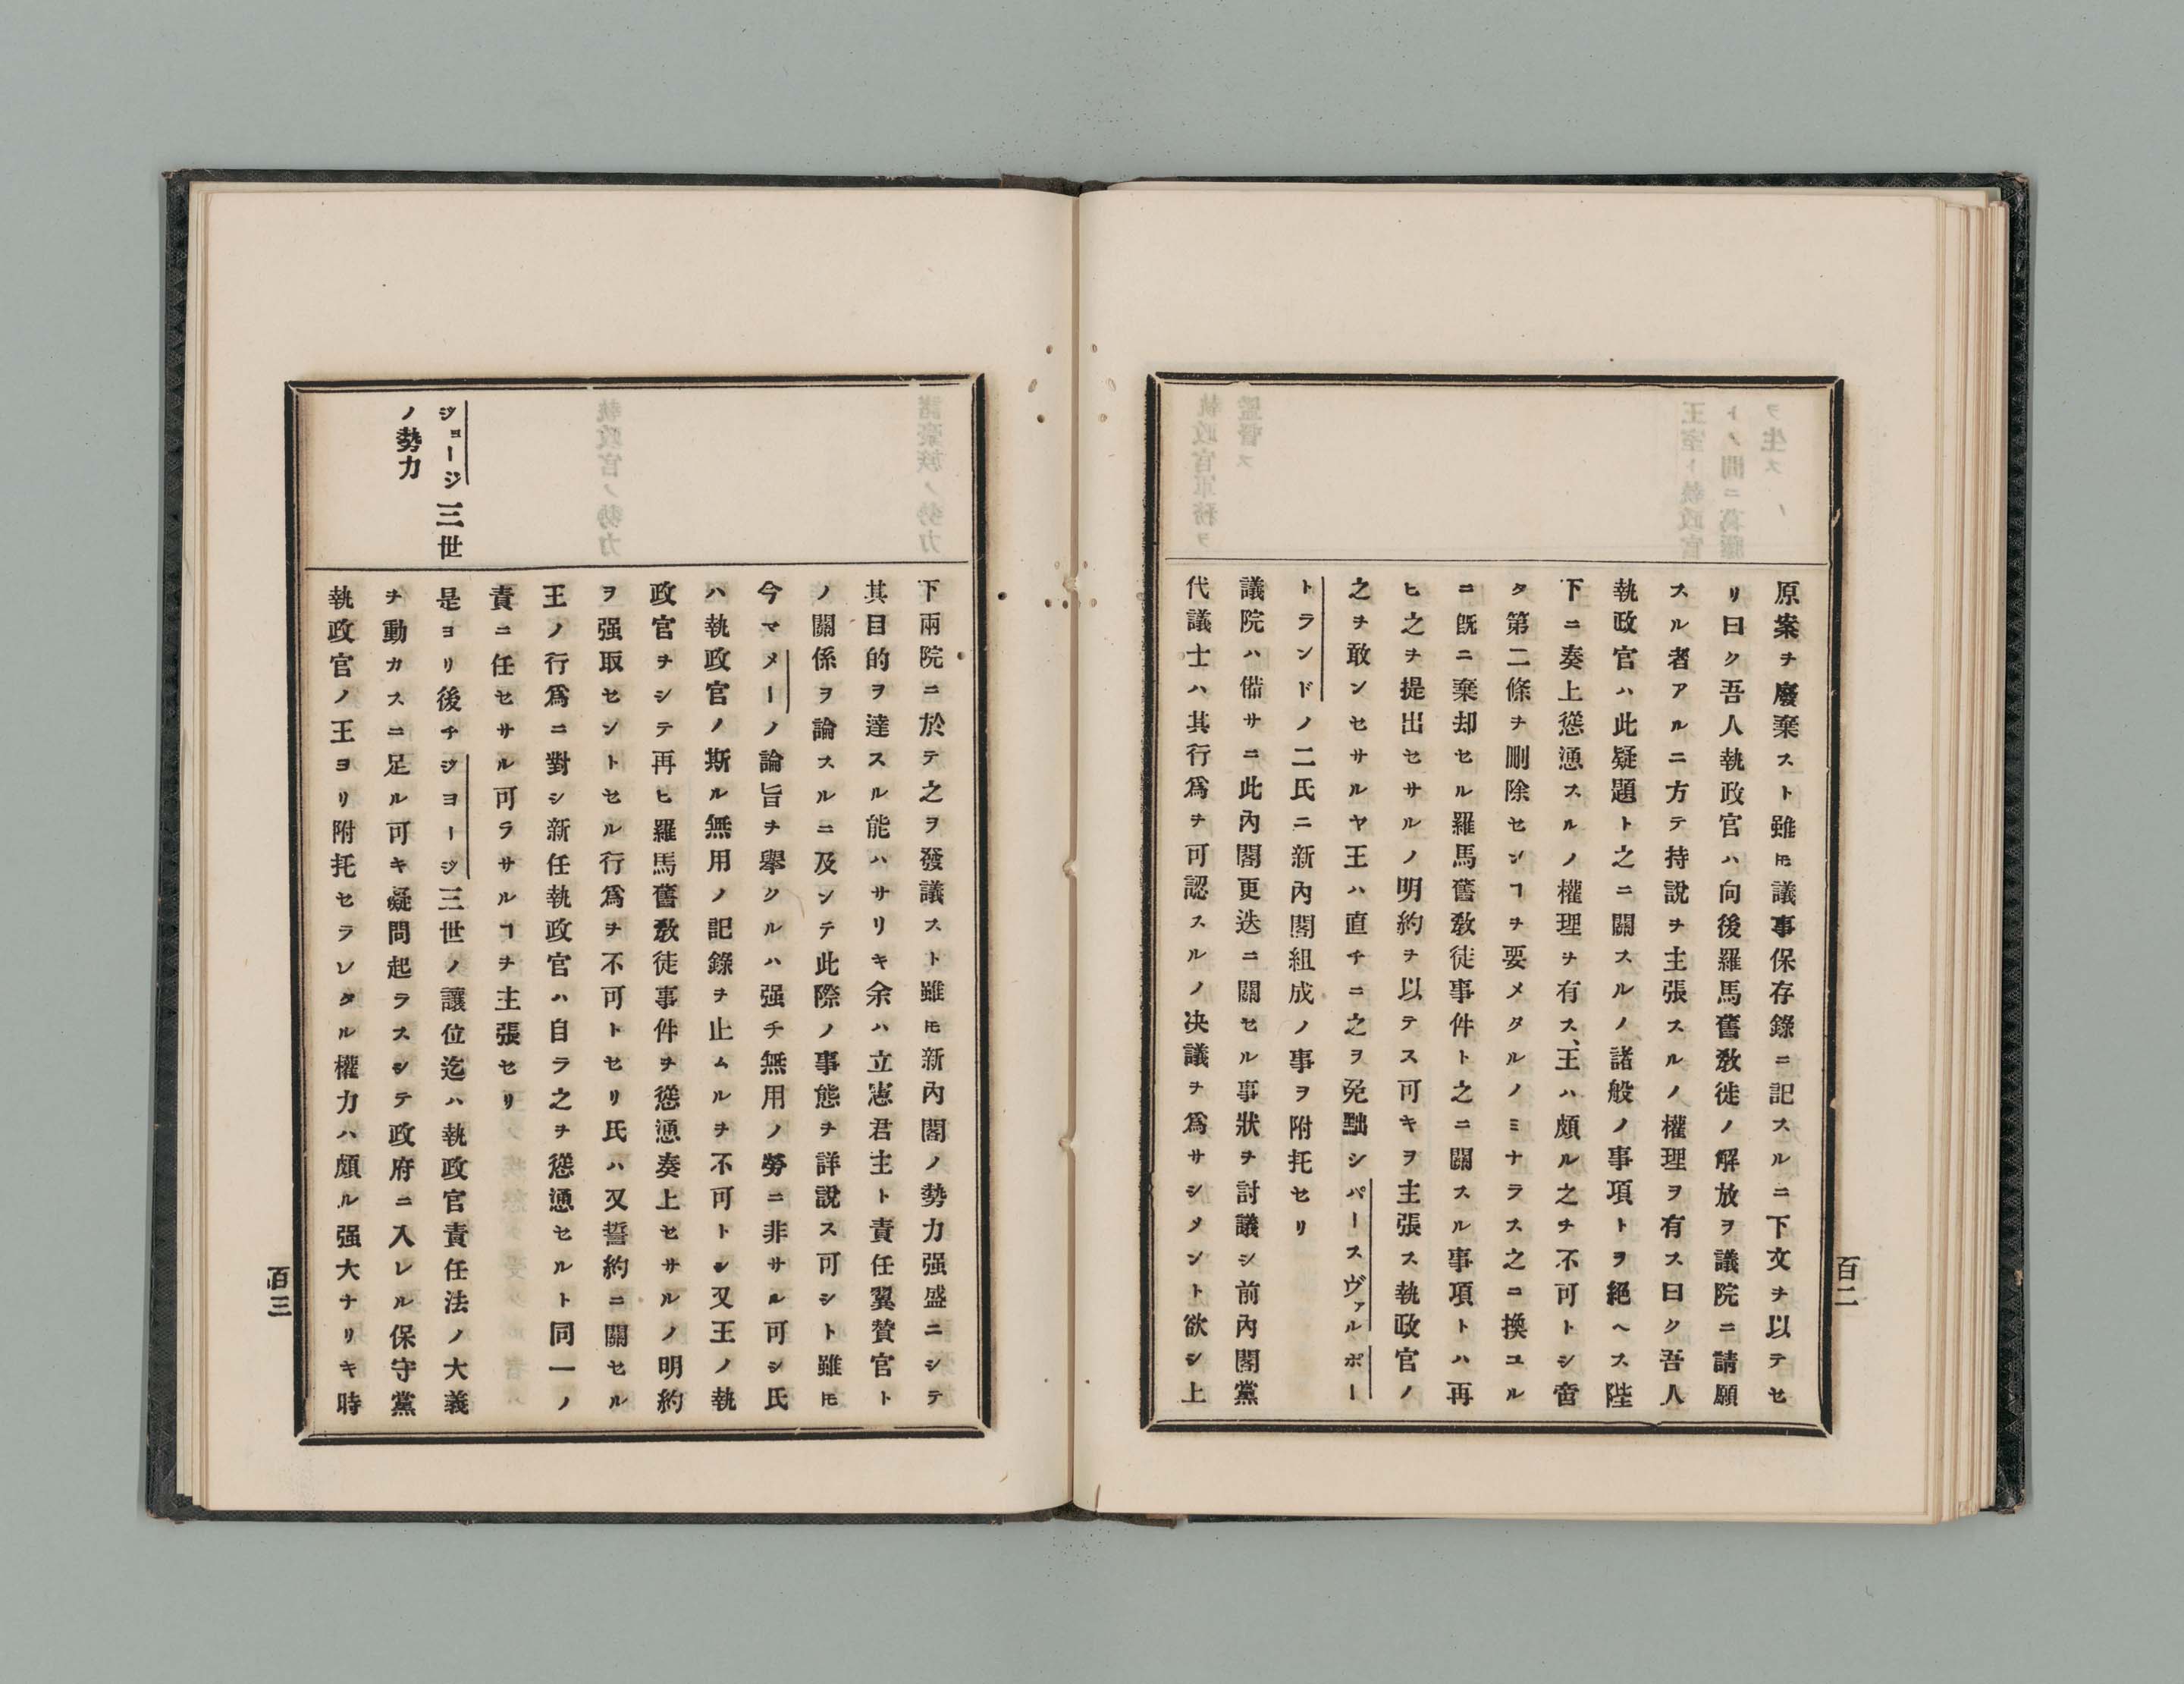 原案ヲ廢棄スト雖𪜈議事保存錄ニ記スルニ下文ヲ以テセ
リ曰ク吾人執政官ハ向後羅馬舊敎徒ノ解放ヲ議院ニ請願
スル者アルニ方テ持說ヲ主張スルノ權理ヲ有ス曰ク吾人
執政官ハ此疑題ト之ニ關スルノ諸般ノ事項トヲ絕ヘス陛
下ニ奏上慫慂スルノ權理ヲ有ス、王ハ頗ル之ヲ不可トシ啻
タ第二條ヲ刪除センヿヲ要メタルノミナラス之ニ換ユル
ニ既ニ棄却セル羅馬舊敎徒事件ト之ニ關スル事項トハ再
ヒ之ヲ提出セサルノ明約ヲ以テス可キヲ主張ス執政官ノ
之ヲ敢ンセサルヤ王ハ直チニ之ヲ免黜シパースヴァルポー
トランドノ二氏ニ新內閣組成ノ事ヲ附托セリ
議院ハ備サニ此內閣更迭ニ關セル事狀ヲ討議シ前內閣黨
代議士ハ其行爲ヲ可認スルノ决議ヲ爲サシメント欲シ上
百二
下兩院ニ於テ之ヲ發議スト雖𪜈新內閣ノ勢力强盛ニシテ
其目的ヲ達スル能ハサリキ余ハ立憲君主ト責任翼贊官ト
ノ關係ヲ論スルニ及ンテ此際ノ事態ヲ詳說ス可シト雖𪜈
今マメーノ論旨ヲ擧クルハ强チ無用ノ勞ニ非サル可シ氏
ハ執政官ノ斯ル無用ノ記錄ヲ止ムルヲ不可トシ又王ノ執
政官ヲシテ再ヒ羅馬舊敎徒事件ヲ慫慂奏上セサルノ明約
ヲ强取セントセル行爲ヲ不可トセリ氏ハ又誓約ニ關セル
王ノ行爲ニ對シ新任執政官ハ自ラ之ヲ慫慂セルト同一ノ
責ニ任セサル可ラサルヿヲ主張セリ
ジョージ三世
ノ勢力
是ヨリ後チジヨージ三世ノ讓位迄ハ執政官責任法ノ大義
ヲ動カスニ足ル可キ疑問起ラスシテ政府ニ入レル保守黨
執政官ノ王ヨリ附托セラレタル權力ハ頗ル强大ナリキ時
百三